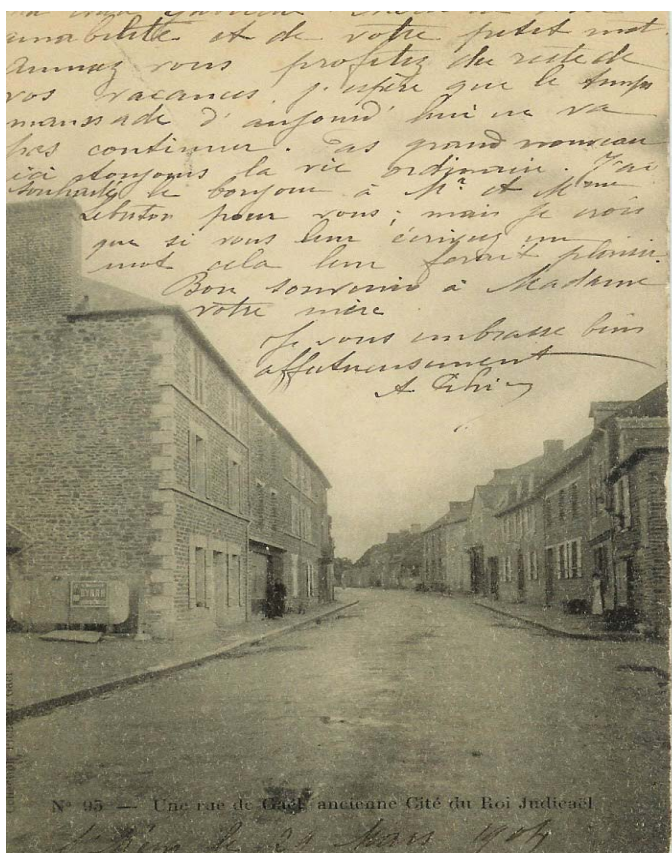 amabilité et de votre petit mot
amusez vous profitez du reste de
vos vacances. j'espère que le temps
maussade d'aujourd'hui ne va
pas continuer. Pas grand nouveau
ici toujours la vie ordinaire. J'ai
souhaité le bonjour à Mr et Mme
pour vous; mais je crois
que si vous leur écriviez un
mot cela leur ferait plaisir
Bon souvenir à Madame
votre mère
Je vous embrasse bien
affectueusement
A
BYRRH
N° 95 — Une rue de Gaël, ancienne Cité du Roi Judicaël
le Mars